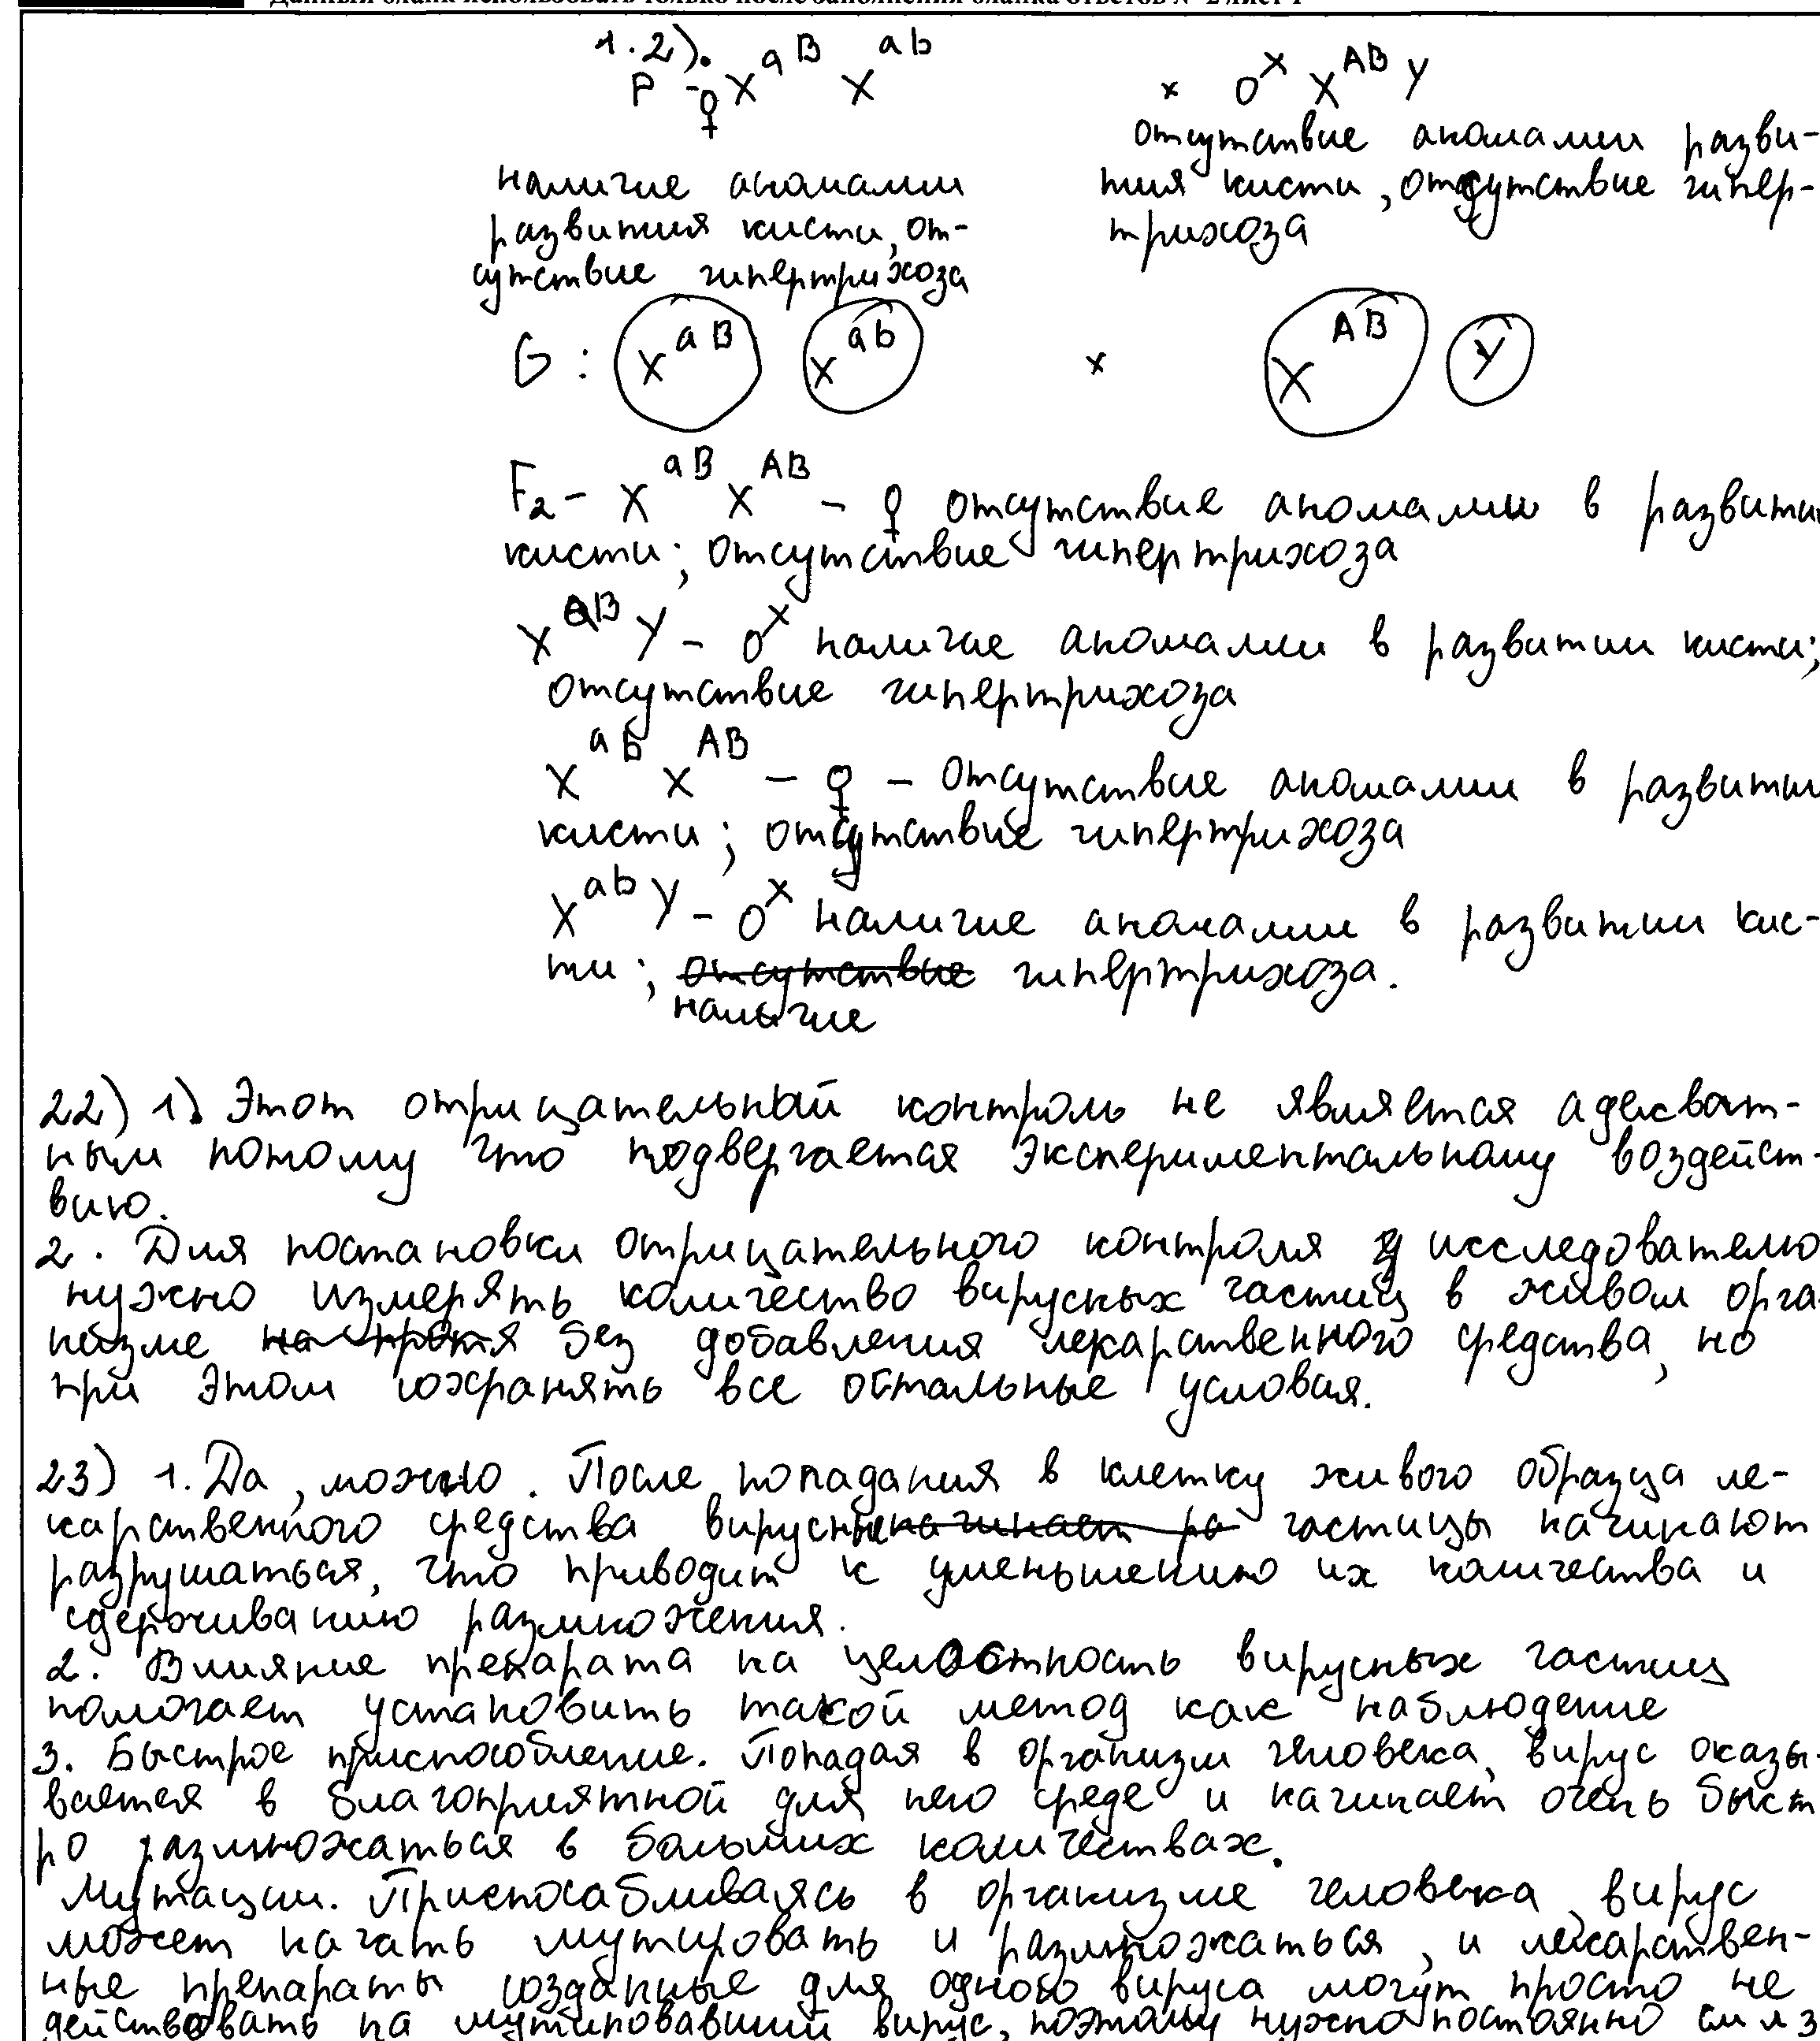 Данный бланк использовать только после заполнения бланка ответов № 2 лист 1
1.2).
P ♀ X^aB X^ab × ♂ X^AB Y
отсутствие аномалии разви-
наличие аномалии тия кисти, отсутствие гипер-
развития кисти, от- трихоза
сутствие гипертрихоза
G: X^aB X^ab × X^AB Y
F2 - X^aB X^AB - ♀ отсутствие аномалии в развити
кисти; отсутствие гипертрихоза
X^aB Y - ♂ наличие аномалии в развитии кисти;
отсутствие гипертрихоза
X^ab X^AB - ♀ - отсутствие аномалии в развити
кисти; отсутствие гипертрихоза
X^ab Y - ♂ наличие аномалии в развитии кис-
ти; отсутствие гипертрихоза.
наличие
22) 1). Этот отрицательный контроль не является адекват-
ным потому что подвергается экспериментальному воздейст-
вию.
2. Для постановки отрицательного контроля исследователю
нужно измерять количество вирусных частиц в живом орга
низме без добавления лекарственного средства, но
при этом сохранять все остальные условая.
23) 1. Да, можно. После попадания в клетку живого образца ле-
карственного средства вирусные начинает ра частицы начинают
разрушаться, что приводит к уменьшению их количества и
сдерживанию размножения.
2. Влияние препарата на целостность вирусных частиц
помогает установить такой метод как наблюдение
3. Быстрое приспособление. Попадая в организм человека, вирус оказы-
вается в благоприятной для него среде и начинает очень быст
ро размножаться в больших количествах.
Мутации. Приспосабливаясь в организме человека, вирус
может начать мутировать и размножаться, и лекарствен-
ные препараты созданные для одного вируса могут просто не
действовать на мутировавший вирус, поэтому нужно постоянно